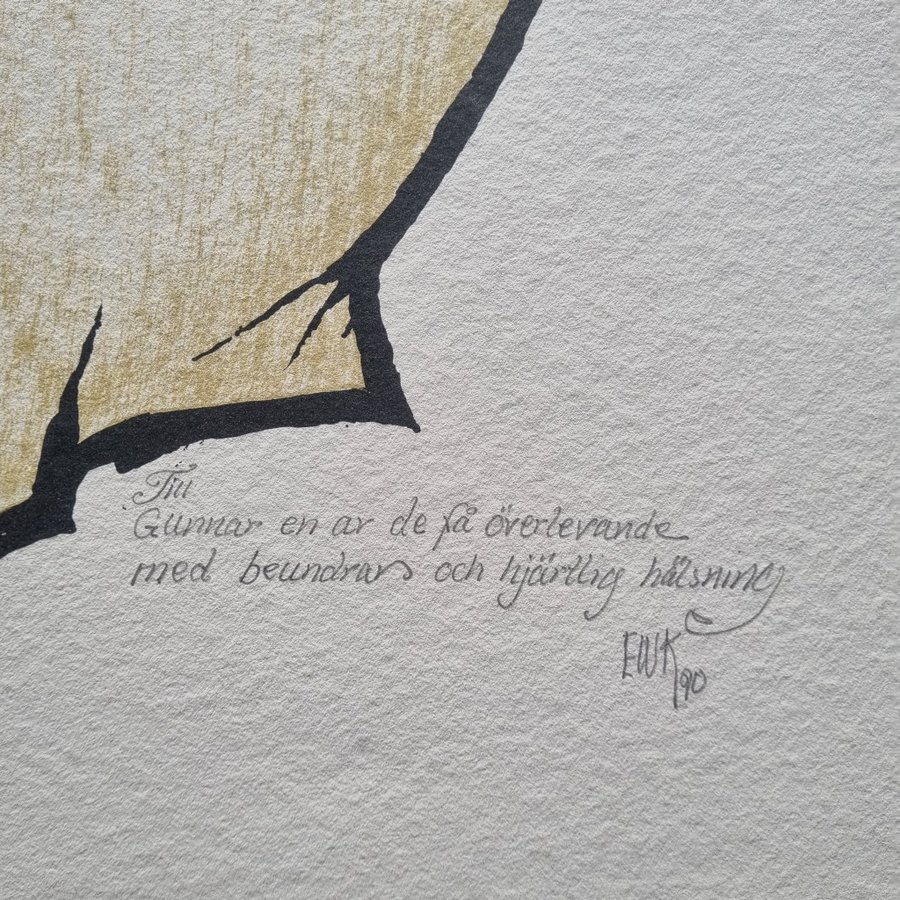 Till
Gunnar en av de få överlevande
med beundran och hjärtlig hälsning
EWK 90